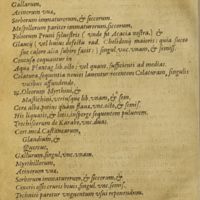 Gallarum,
Acinorum vuæ,
Sorborum immaturorum, & siccorum.
Mespilorum pariter immaturorum, siccorum,
Foliorum Pruni siluestris (vnde fit Acacia nostra,) &
Glaucij (vel huius defectu rad. Chelidonij maioris: quia succo
sue calore alia subit facit) singul. vnc. vnam, & semiss.
Concusa coquantur in
Aquæ Plantag. lib. octo; vel quant. sufficienti ad mediatas.
Colatura sequentia nouies lauentur recentem Colaturam, singulis
vicibus affundendo.
℞. Oleorum Myrthini, &
Mastichini, vtriusque lib. vnam, & sem.
Ceræ albæ partes vnam, vnc. octo, & semis.
His liquatis, & lotis, insperge sequentem puluerem.
Trochiscorum de Karabe, vnc. duas.
Cort. med. Castanearum,
Glandium, &
Quercus,
Gallarum, singul. vnc. vnam.
Myrthillorum,
Acinorum vuæ,
Sorborum immaturorum, & siccorum, &
Cineris ossis cruris bouis, singul. vnc. semis.
Technicè paretur vnguentum vsui reponendum.